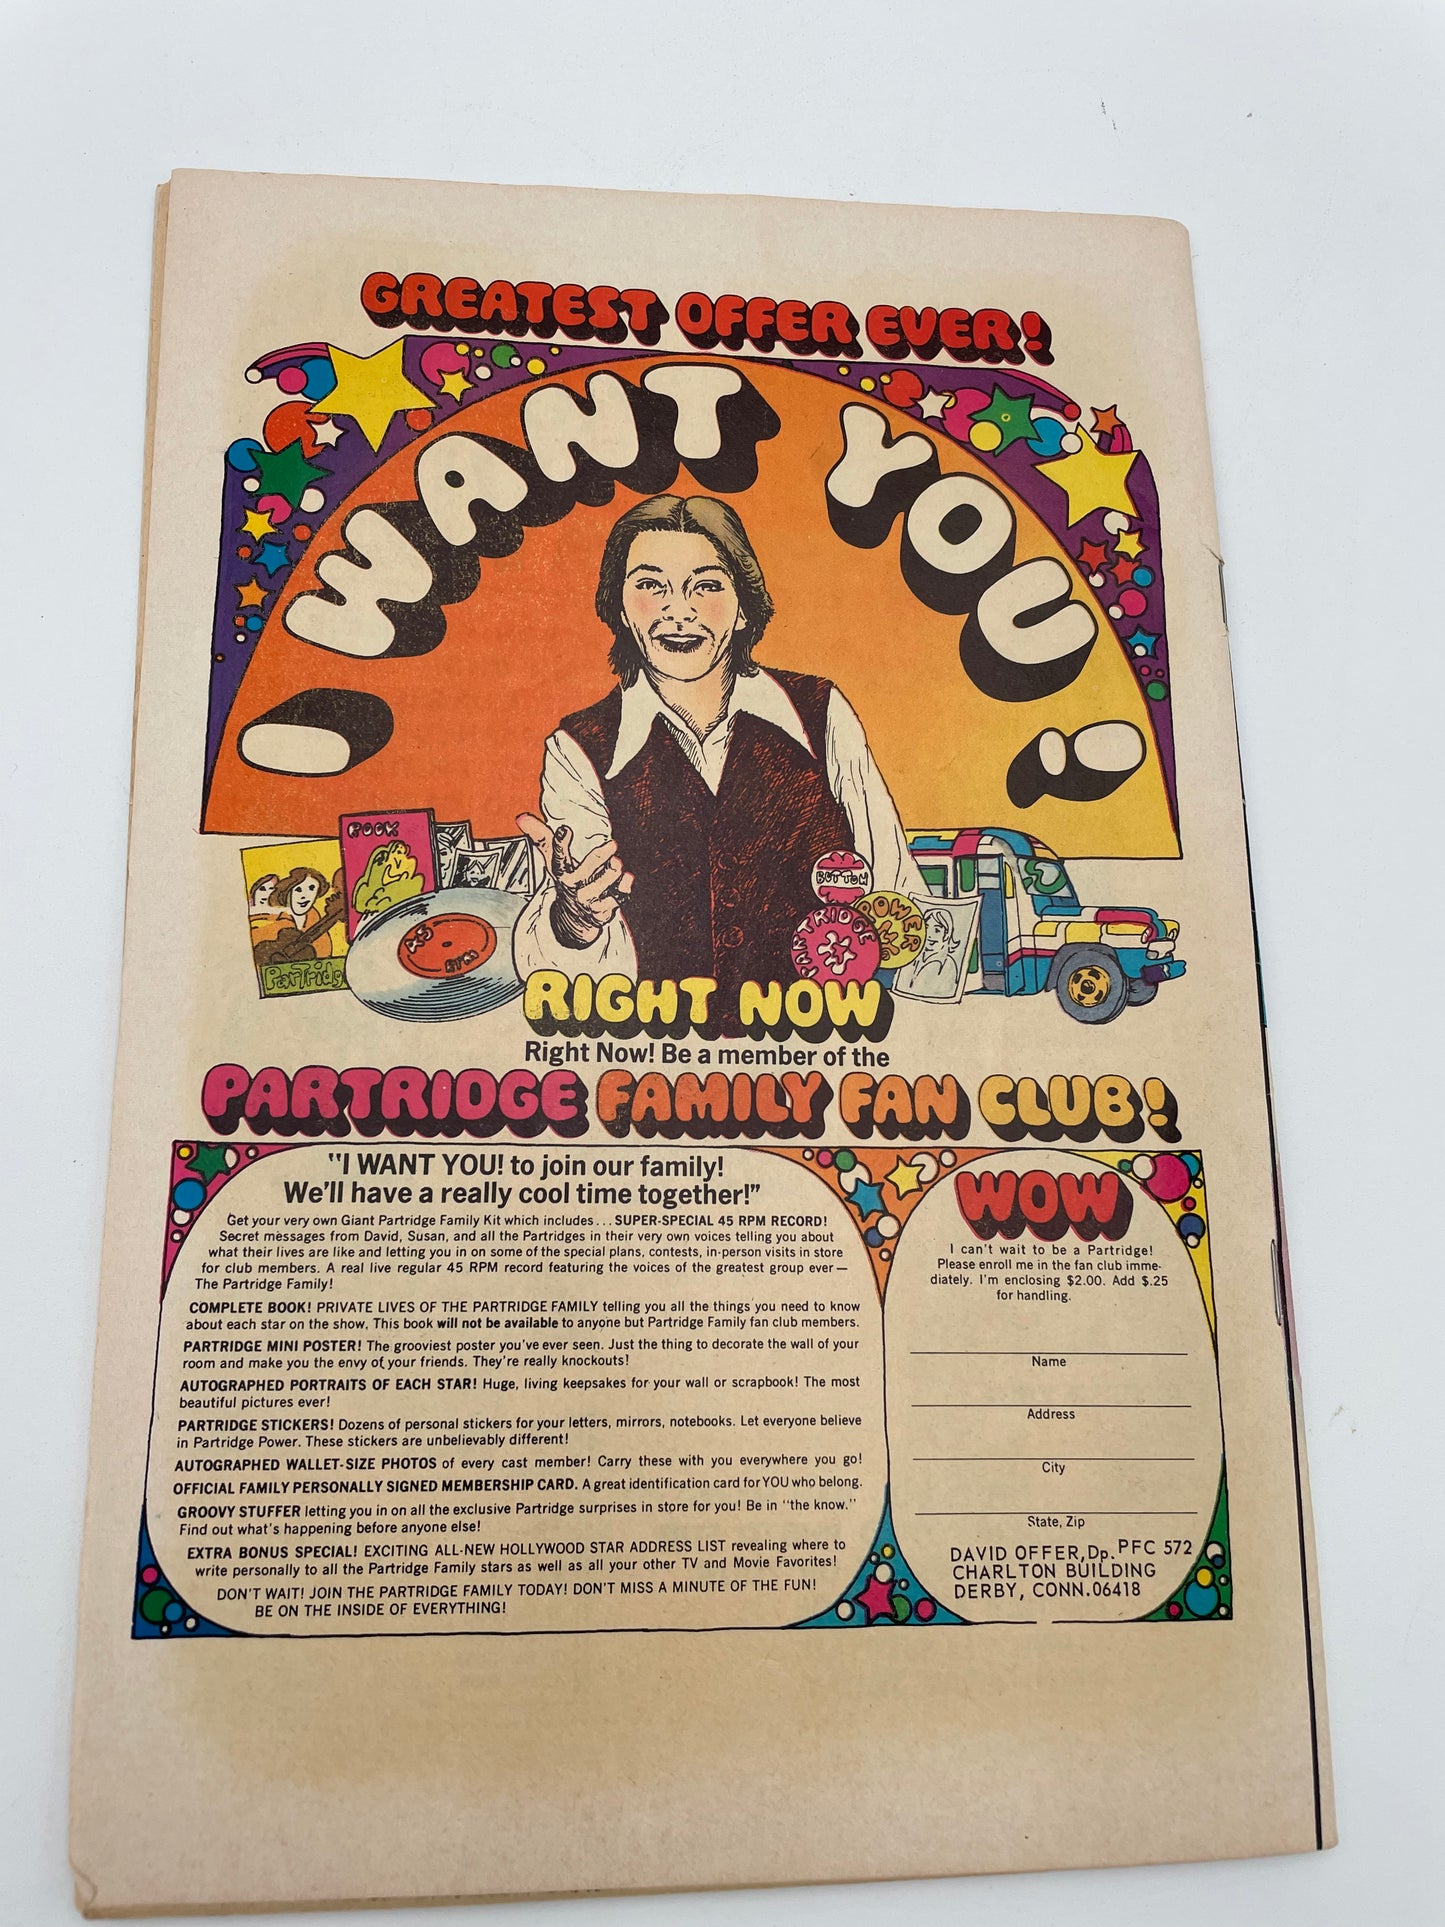 GREATEST OFFER EVER!
I WANT YOU!
BOOK
ParTridg
45
RPM
BUTTON
POWER
PARTRIDGE
RIGHT NOW
Right Now! Be a member of the
PARTRIDGE FAMILY FAN CLUB!
"I WANT YOU! to join our family!
We'll have a really cool time together!"
Get your very own Giant Partridge Family Kit which includes... SUPER-SPECIAL 45 RPM RECORD!
Secret messages from David, Susan, and all the Partridges in their very own voices telling you about
what their lives are like and letting you in on some of the special plans, contests, in-person visits in store
for club members. A real live regular 45 RPM record featuring the voices of the greatest group ever—
The Partridge Family!
COMPLETE BOOK! PRIVATE LIVES OF THE PARTRIDGE FAMILY telling you all the things you need to know
about each star on the show. This book will not be available to anyone but Partridge Family fan club members.
PARTRIDGE MINI POSTER! The grooviest poster you've ever seen. Just the thing to decorate the wall of your
room and make you the envy of your friends. They're really knockouts!
AUTOGRAPHED PORTRAITS OF EACH STAR! Huge, living keepsakes for your wall or scrapbook! The most
beautiful pictures ever!
PARTRIDGE STICKERS! Dozens of personal stickers for your letters, mirrors, notebooks. Let everyone believe
in Partridge Power. These stickers are unbelievably different!
AUTOGRAPHED WALLET-SIZE PHOTOS of every cast member! Carry these with you everywhere you go!
OFFICIAL FAMILY PERSONALLY SIGNED MEMBERSHIP CARD. A great identification card for YOU who belong.
GROOVY STUFFER letting you in on all the exclusive Partridge surprises in store for you! Be in "the know."
Find out what's happening before anyone else!
EXTRA BONUS SPECIAL! EXCITING ALL-NEW HOLLYWOOD STAR ADDRESS LIST revealing where to
write personally to all the Partridge Family stars as well as all your other TV and Movie Favorites!
DON'T WAIT! JOIN THE PARTRIDGE FAMILY TODAY! DON'T MISS A MINUTE OF THE FUN!
BE ON THE INSIDE OF EVERYTHING!
WOW
I can't wait to be a Partridge!
Please enroll me in the fan club imme-
diately. I'm enclosing $2.00. Add $.25
for handling.
Name
Address
City
State, Zip
DAVID OFFER, Dp. PFC 572
CHARLTON BUILDING
DERBY, CONN. 06418